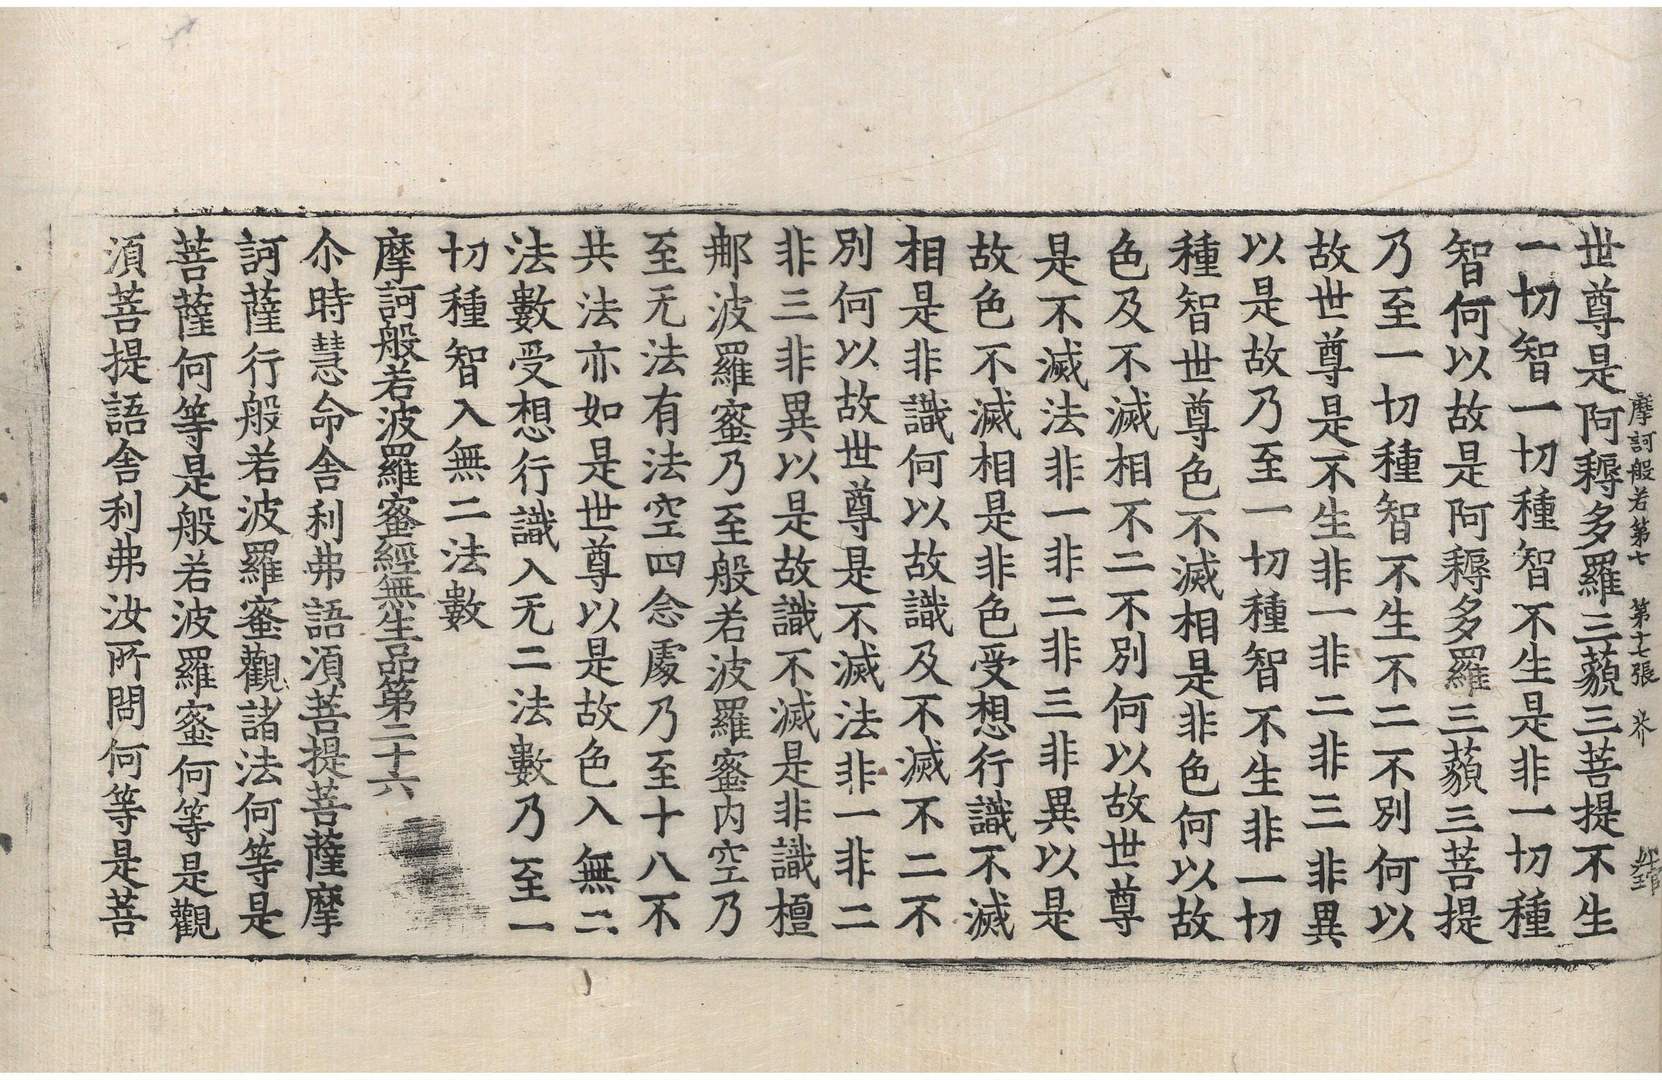 摩訶般若第七 第十七張 芥
世尊是阿耨多羅三藐三菩提不生
一切智一切種智不生是非一切種
智何以故是阿耨多羅三藐三菩提
乃至一切種智不生不二不別何以
故世尊是不生非一非二非三非異
以是故乃至一切種智不生非一切
種智世尊色不滅相是非色何以故
色及不滅相不二不別何以故世尊
是不滅法非一非二非三非異以是
故色不滅相是非色受想行識不滅
相是非識何以故識及不滅不二不
別何以故世尊是不滅法非一非二
非三非異以是故識不滅是非識檀
那波羅蜜乃至般若波羅蜜内空乃
至无法有法空四念處乃至十八不
共法亦如是世尊以是故色入無二
法數受想行識入无二法數乃至一
切種智入無二法數
摩訶般若波羅蜜經無生品第二十六
尒時慧命舍利弗語須菩提菩薩摩
訶薩行般若波羅蜜觀諸法何等是
菩薩何等是般若波羅蜜何等是觀
須菩提語舍利弗汝所問何等是菩